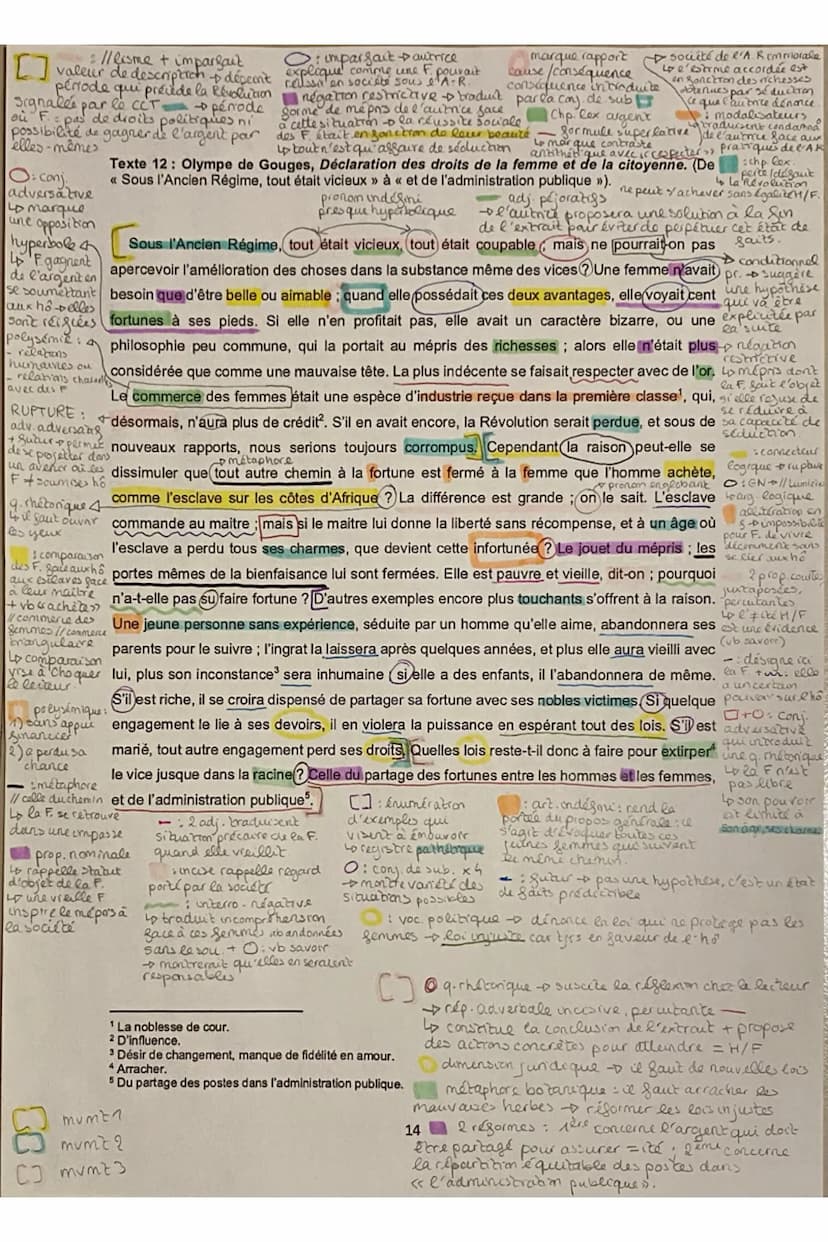 : //lisme + imparfait
valeur de description → dépeint
période qui précède la Révolution
signalée par le CCT → période
où F : pas de droits politiques ni
possibilité de gagner de l'argent par
elles-mêmes
: imparfait → autrice
explique comme une F. pouvait
réussir en société sous l'A-R.
négation restrictive → traduit
forme de mépris de l'autrice face
à cette situation → la réussite sociale
des F. était en fonction de leur beauté
↳ tout n'est qu'affaire de séduction
marque rapport
cause/conséquence
conséquence introduite
par la conj. de sub
Chp. lex argent
— formule superlative
↳ marque contraste
antithétique avec « respecter »
→ société de l'A.R immorale
↳ l'estime accordée est
en fonction des richesses
obtenues par séduction
ce que l'autrice dénonce.
: modalisateurs
traduisent condamn°
de l'autrice face aux
pratiques de l'A.R
Texte 12 : Olympe de Gouges, Déclaration des droits de la femme et de la citoyenne. (De
« Sous l'Ancien Régime, tout était vicieux » à « et de l'administration publique »).
: chp lex.
perte/dégât
↳ la Révolution
ne peut s'achever sans égalité H/F.
pronom indéfini
presque hyperbolique
— adj. péjoratifs
→ l'autrice proposera une solution à la fin
de l'extrait pour éviter de perpétuer cet état de
faits.
O : conj.
adversative
↳ marque
une opposition
hyperbole
↳ F gagnent
de l'argent en
se soumettant
aux hô → elles
sont réifiées
polysémie :
- relations
humaines ou
- relations charnelles
avec des F
Sous l'Ancien Régime, tout était vicieux, tout était coupable ; mais ne pourrait-on pas
apercevoir l'amélioration des choses dans la substance même des vices ? Une femme n'avait
besoin que d'être belle ou aimable ; quand elle possédait ces deux avantages, elle voyait cent
fortunes à ses pieds. Si elle n'en profitait pas, elle avait un caractère bizarre, ou une
philosophie peu commune, qui la portait au mépris des richesses ; alors elle n'était plus
considérée que comme une mauvaise tête. La plus indécente se faisait respecter avec de l'or.
Le commerce des femmes était une espèce d'industrie reçue dans la première classe¹, qui,
désormais, n'aura plus de crédit². S'il en avait encore, la Révolution serait perdue, et sous de
nouveaux rapports, nous serions toujours corrompus. Cependant la raison peut-elle se
métaphore
dissimuler que tout autre chemin à la fortune est fermé à la femme que l'homme achète,
pronom englobant
comme l'esclave sur les côtes d'Afrique ? La différence est grande ; on le sait. L'esclave
commande au maître ; mais si le maître lui donne la liberté sans récompense, et à un âge où
l'esclave a perdu tous ses charmes, que devient cette infortunée ? Le jouet du mépris ; les
portes mêmes de la bienfaisance lui sont fermées. Elle est pauvre et vieille, dit-on ; pourquoi
n'a-t-elle pas su faire fortune ? D'autres exemples encore plus touchants s'offrent à la raison.
Une jeune personne sans expérience, séduite par un homme qu'elle aime, abandonnera ses
parents pour le suivre ; l'ingrat la laissera après quelques années, et plus elle aura vieilli avec
lui, plus son inconstance³ sera inhumaine ; si elle a des enfants, il l'abandonnera de même.
S'il est riche, il se croira dispensé de partager sa fortune avec ses nobles victimes. Si quelque
engagement le lie à ses devoirs, il en violera la puissance en espérant tout des lois. S'il est
marié, tout autre engagement perd ses droits. Quelles lois reste-t-il donc à faire pour extirper⁴
le vice jusque dans la racine ? Celle du partage des fortunes entre les hommes et les femmes,
et de l'administration publique⁵.
→ conditionnel
pr. → suggère
une hypothèse
qui va être
explicitée par
la suite
→ négation
restrictive
↳ mépris dont
la F. fait l'objet
si elle refuse de
se réduire à
sa capacité de
séduction
: connecteur
logique → rupture
O : GN → Lumières
↳ arg. logique
: allitération en
f → impossibilité
pour F. de vivre
décemment sans
se lier aux hô
2 prop. courtes
juxtaposées,
percutantes
↳ l'≠ité H/F
est une évidence
(vb savoir)
— : désigne ici
la F + : elle
a un certain
pouvoir sur l'hô
□ + O : Conj.
adversative
qui introduit
une q. rhétorique
↳ la F n'est
pas libre
↳ son pouvoir
est limité à
son âge, ses charmes
RUPTURE :
adv. adversatif
+ futur → permet
de se projeter dans
un avenir où les
F ≠ soumises hô
q. rhétorique
↳ il faut ouvrir
les yeux
: comparaison
des F. face aux hô
aux esclaves face
à leur maître
+ vb « achète »
// commerce des
femmes // commerce
triangulaire
↳ comparaison
vise à choquer
le lecteur.
polysémique :
1) sans appui
financier
2) a perdu sa
chance
— : métaphore
// celle du chemin
↳ la F. se retrouve
dans une impasse
prop. nominale
↳ rappelle statut
d'objet de la F.
↳ une vieille F
inspire le mépris à
la société
— : 2 adj. traduisent
situation précaire de la F.
quand elle vieillit
: incise rappelle regard
porté par la société
: interro-négative
↳ traduit incompréhension
face à ces femmes abandonnées
sans le sou. + O : vb savoir
→ montrerait qu'elles en seraient
responsables
[ ] : énumération
d'exemples qui
visent à émouvoir
↳ registre pathétique
O : conj. de sub. x4
→ montre variété des
situations possibles
: art. indéfini : rend la
portée du propos générale : il
s'agit d'évoquer toutes ces
jeunes femmes qui suivent
le même chemin.
— : futur → pas une hypothèse, c'est un état
de faits prédictible
: voc. politique → dénonce la loi qui ne protège pas les
femmes → loi injuste car tjrs en faveur de l'hô
[ ] q. rhétorique → suscite la réflexion chez le lecteur
→ rép. adverbale incisive, percutante —
↳ constitue la conclusion de l'extrait + propose
des actions concrètes pour atteindre = H/F
dimension juridique → il faut de nouvelles lois
métaphore botanique : il faut arracher les
mauvaises herbes → réformer les lois injustes
2 réformes : 1ère concerne l'argent qui doit
être partagé pour assurer =ité ; 2ème concerne
la répartition équitable des postes dans
« l'administration publique ».
¹ La noblesse de cour.
² D'influence.
³ Désir de changement, manque de fidélité en amour.
⁴ Arracher.
⁵ Du partage des postes dans l'administration publique.
[ ] mvmt 1
[ ] mvmt 2
[ ] mvmt 3
14